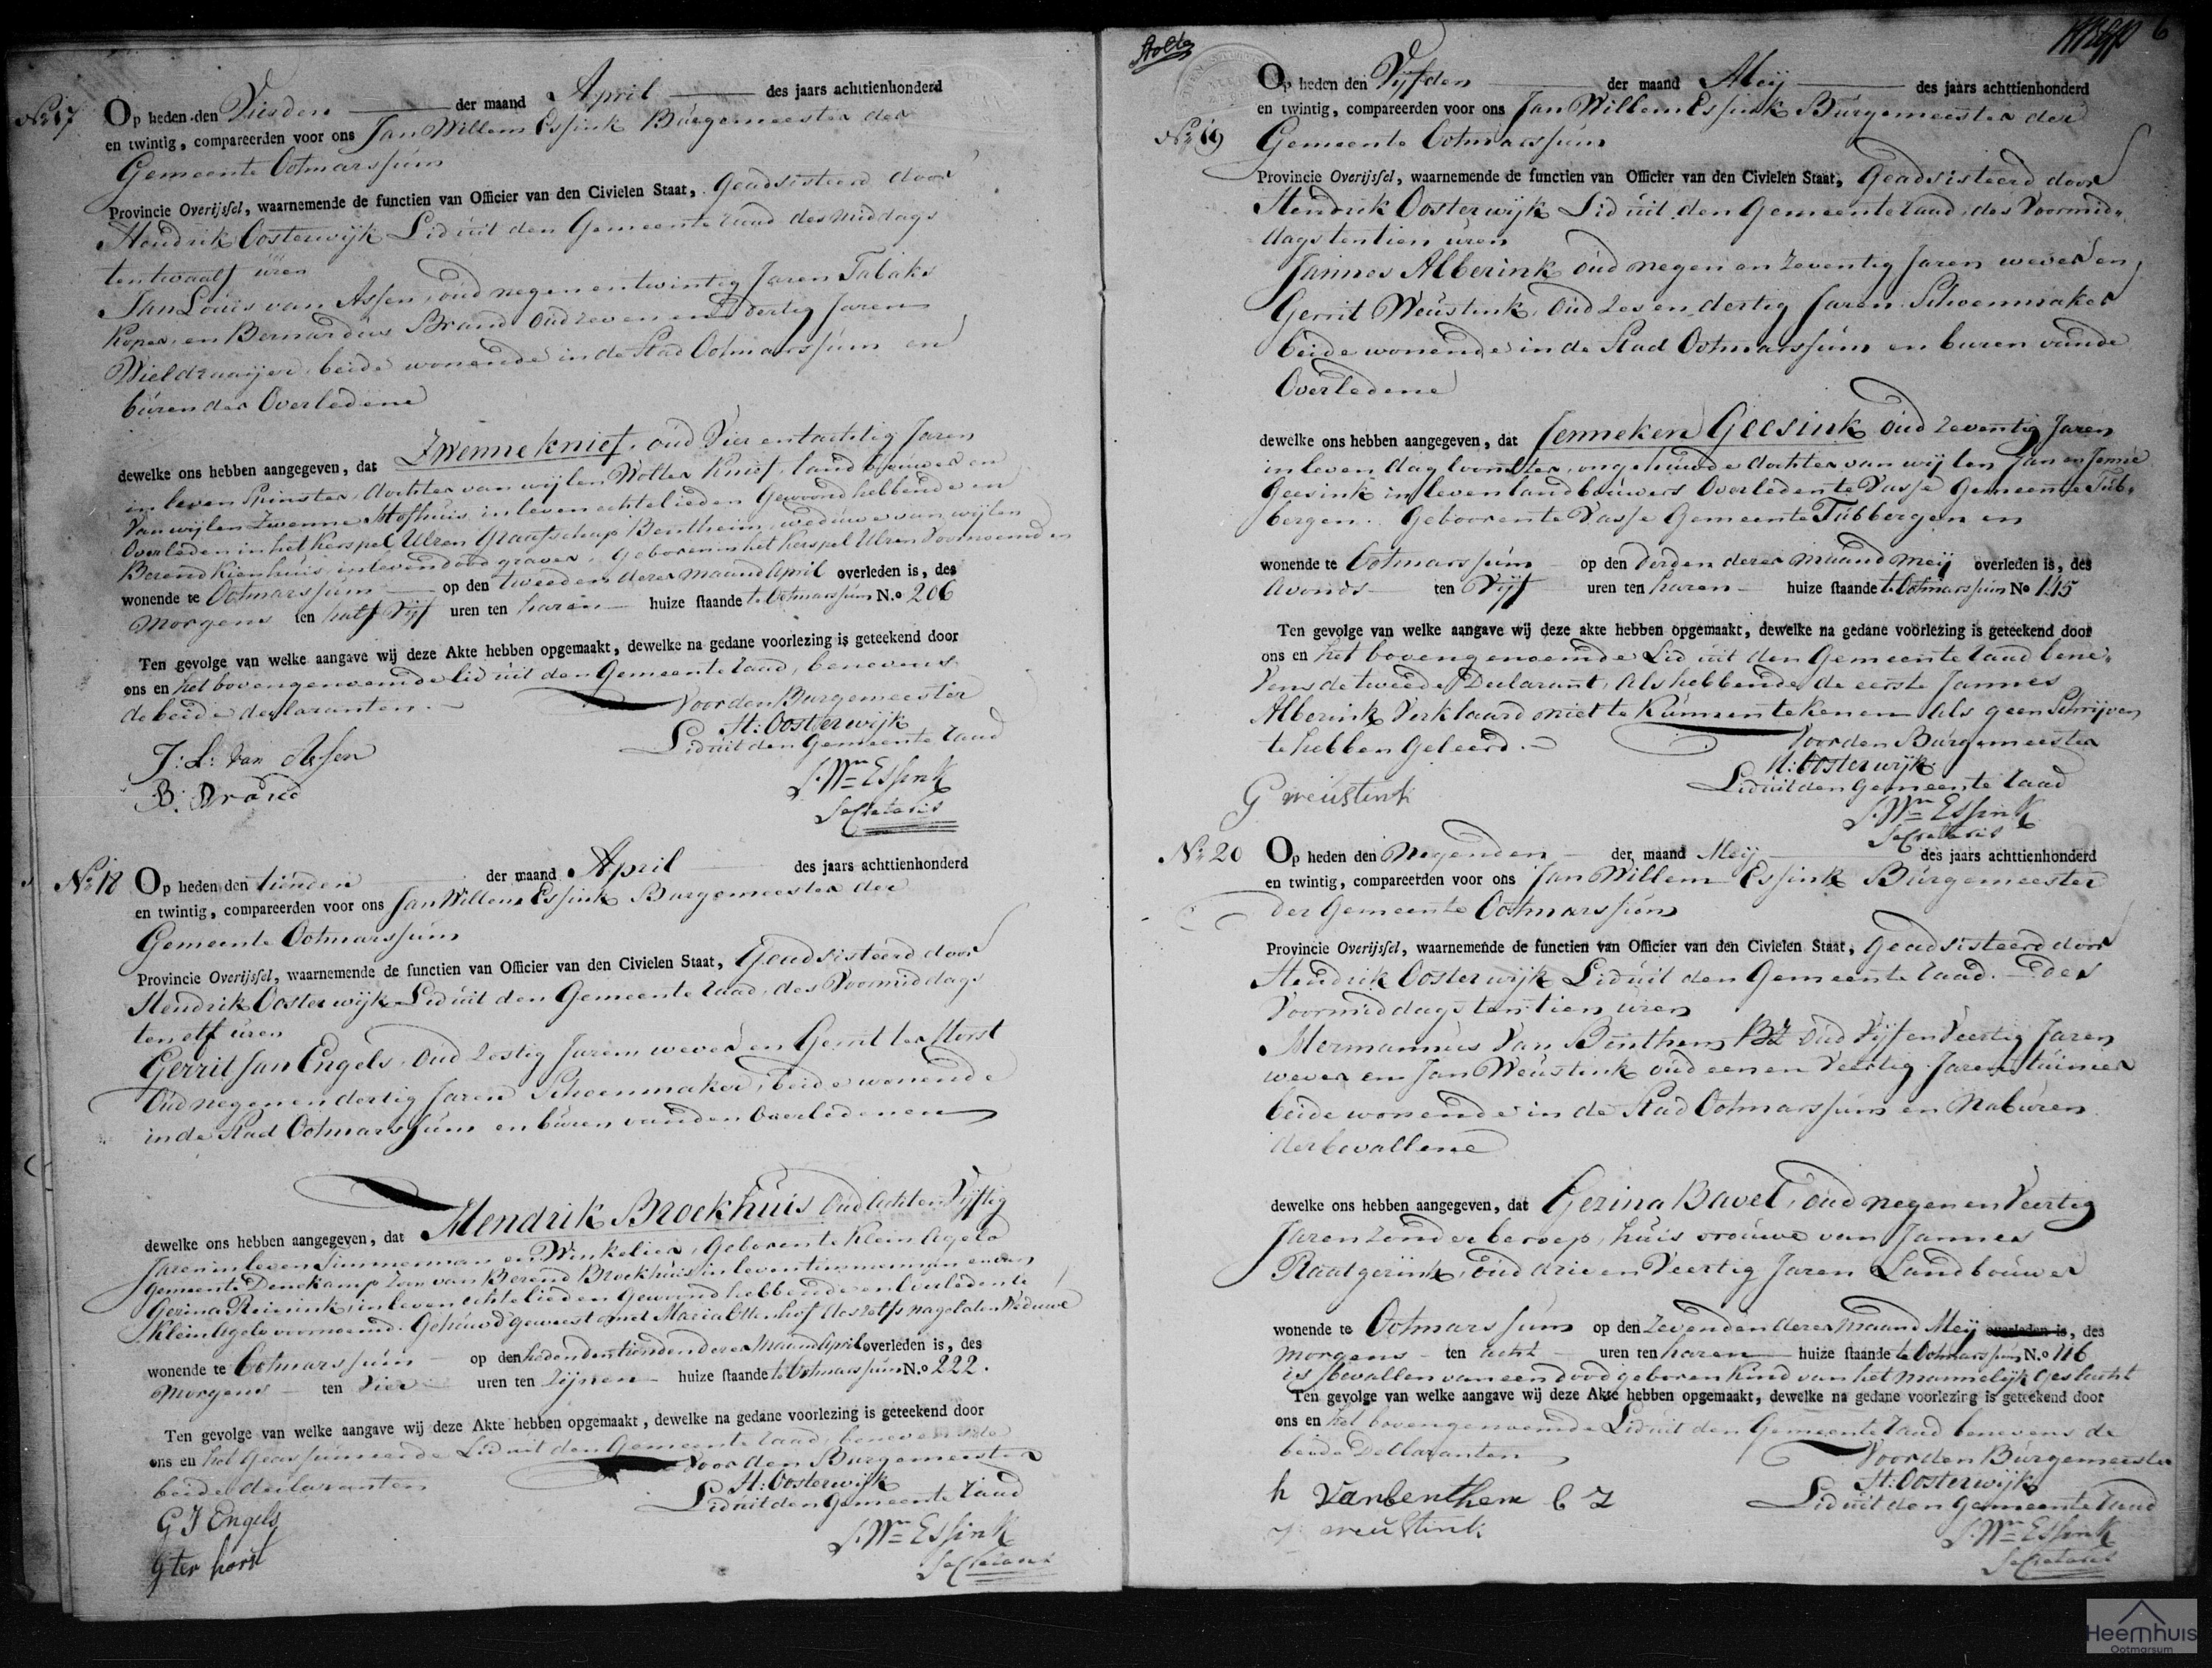 No: 17 Op heden den Vierden der maand April des jaars achttienhonderd
en twintig, compareerden voor ons Jan Willem Essink Burgemeester der
Gemeente Ootmarssum
Provincie Overijssel, waarnemende de functien van Officier van den Civielen Staat, Geadsisteerd door
Hendrik Oosterwijk Lid uit den Gemeente raad des middags
ten twaalf uren
Jan Louis van Assen, oud negen en twintig Jaren Tabaks
Koper, en Bernardus Brand oud zeven en dertig Jaren
Wieldraaijer, beide wonende in de Stad Ootmarssum en
buren der Overledene
dewelke ons hebben aangegeven, dat Zwenne Knief, oud Vier en tachtig Jaren
in leven Spinster, dochter van wijlen Wolter Knief, landbouwer en
van wijlen Zwenne Hofhuis in leven echtelieden Gewoond hebbende en
Overleden in het Kerspel Ulzen Graafschap Bentheim, weduwe van wijlen
Berend Kienhuis, in leven doodgraver, Geboren in het Kerspel Ulzen Voornoemd en
wonende te Ootmarssum op den tweeden dezer maand April overleden is, des
Morgens ten half Vijf uren ten haren huize staande te Ootmarssum N.o 206
Ten gevolge van welke aangave wij deze Akte hebben opgemaakt, dewelke na gedane voorlezing is geteekend door
ons en het bovengenoemde lid uit den Gemeente raad, benevens
de beide declaranten.
Voor den Burgemeester
H: Oosterwijk
Lid uit den Gemeente raad
J: L: van Assen
B: Brand
J. Wm Essink
Secretaris
No: 18 Op heden den tienden der maand April des jaars achttienhonderd
en twintig, compareerden voor ons Jan Willem Essink Burgemeester der
Gemeente Ootmarssum
Provincie Overijssel, waarnemende de functien van Officier van den Civielen Staat, Geadsisteerd door
Hendrik Oosterwijk Lid uit den Gemeente raad, des Voormiddags
ten elf uren
Gerrit Jan Engels, Oud Zestig Jaren wever en Gerrit ter Horst
Oud negen en dertig Jaren Schoenmaker, beide wonende
in de Stad Ootmarssum en buren van den Overledenen
dewelke ons hebben aangegeven, dat Hendrik Broekhuis Oud Acht en Vijftig
Jaren in leven Timmerman en Winkelier, Geboren te Klein Agelo
Gemeente Denekamp Zoon van Berend Broekhuis in leven timmerman en van
Gezina Reierink in leven echtelieden Gewoond hebbende en Overleden te
Klein Agelo voornoemd. Gehuwd geweest met Maria Ottenhof deszelfs nagelaten Weduwe
wonende te Ootmarssum op den heden den tienden dezer Maand April overleden is, des
Morgens ten Vier uren ten Zijnen huize staande te Ootmarssum N.o 222.
Ten gevolge van welke aangave wij deze Akte hebben opgemaakt, dewelke na gedane voorlezing is geteekend door
ons en het Geassumeerde Lid uit den Gemeente raad, benevens de
beide declaranten
Voor den Burgemeester
H: Oosterwijk
Lid uit den Gemeente raad
G J Engels
G ter horst
J. Wm Essink
Secretaris
6
No: 19 Op heden den Vijfden der maand Meij des jaars achttienhonderd
en twintig, compareerden voor ons Jan Willem Essink Burgemeester der
Gemeente Ootmarssum
Provincie Overijssel, waarnemende de functien van Officier van den Civielen Staat, Geadsisteerd door
Hendrik Oosterwijk Lid uit den Gemeente raad, des Voormid„
dags ten tien uren
Jannes Alberink oud negen en Zeventig Jaren wever en
Gerrit Weustink, Oud Zes en dertig Jaren Schoenmaker
beide wonende in de Stad Ootmarssum en buren van de
Overledene
dewelke ons hebben aangegeven, dat Jenneken Geesink oud Zeventig Jaren
in leven dagloonster, ongehuwde dochter van wijlen Jan en Jenne
Geesink in leven landbouwers Overleden te Vasse Gemeente Tub„
bergen. Geboren te Vasse Gemeente Tubbergen en
wonende te Ootmarssum op den derden dezer maand Meij overleden is, des
Avonds ten Vijf uren ten haren huize staande te Ootmarssum No 145
Ten gevolge van welke aangave wij deze akte hebben opgemaakt, dewelke na gedane voorlezing is geteekend door
ons en het bovengenoemde Lid uit den Gemeente raad bene„
vens de tweede Declarant, als hebbende de eerste Jannes
Alberink Verklaard niet te Kunnen tekenen Als geen Schrijven
te hebben Geleerd.
Voor den Burgemeester
H: Oosterwijk
Lid uit den Gemeente raad
G weustink
J. Wm Essink
Secretaris
No: 20 Op heden den Negenden der maand Meij des jaars achttienhonderd
en twintig, compareerden voor ons Jan Willem Essink Burgemeester
der Gemeente Ootmarssum
Provincie Overijssel, waarnemende de functien van Officier van den Civielen Staat, Geadsisteerd door
Hendrik Oosterwijk Lid uit den Gemeente raad. des
Voormiddags ten tien uren
Hermannus Van Benthem BZ Oud Vijf en Veertig Jaren
wever en Jan Weustink oud een en Veertig Jaren tuinier
beide wonende in de Stad Ootmarssum en Naburen
der bevallene
dewelke ons hebben aangegeven, dat Gezina Bavel, oud negen en Veertig
Jaren Zonder beroep, huisvrouwe van Jannes
Raatgerink, oud drie en Veertig Jaren Landbouwer
wonende te Ootmarssum op den Zevenden dezer maand Meij overleden is, des
morgens ten acht uren ten haren huize staande te Ootmarssum N.o 116
is bevallen van een dood geboren Kind van het mannelijk Geslacht
Ten gevolge van welke aangave wij deze Akte hebben opgemaakt, dewelke na gedane voorlezing is geteekend door
ons en het bovengenoemde Lid uit den Gemeente raad benevens de
beide Declaranten
Voor den Burgemeester
H: Oosterwijk
Lid uit den Gemeente raad
h Van benthem b Z
J weustink
J. Wm Essink
Secretaris
Heemhuis
Ootmarsum